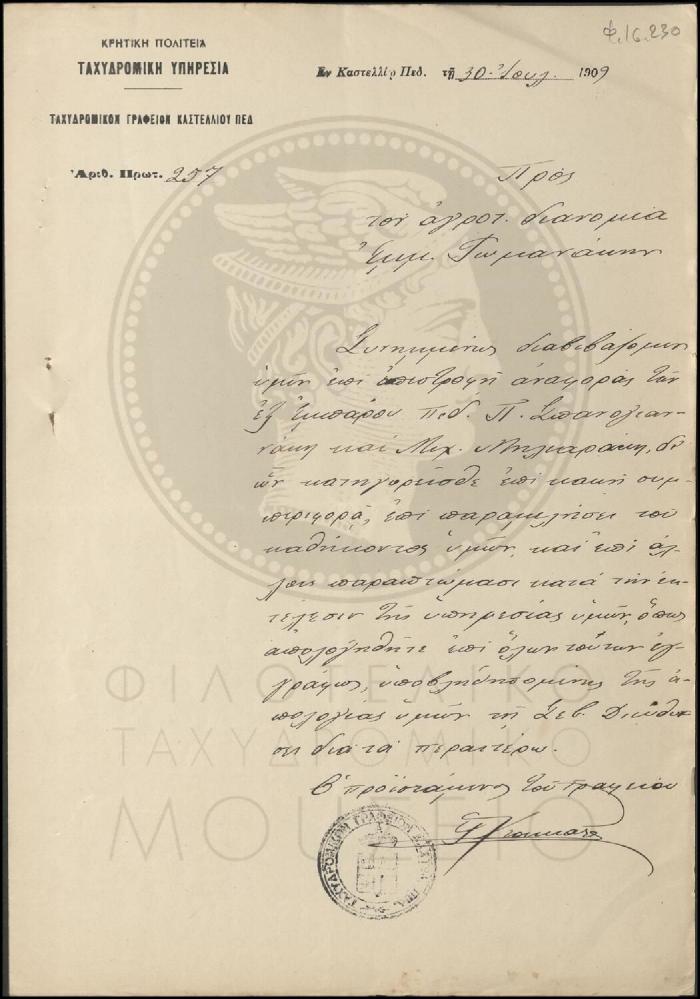 Φ.16.230
ΚΡΗΤΙΚΗ ΠΟΛΙΤΕΙΑ
ΤΑΧΥΔΡΟΜΙΚΗ ΥΠΗΡΕΣΙΑ
Ἐν Καστελλίῳ Πεδ. τῇ 30 Ἰουλ. 1909
ΤΑΧΥΔΡΟΜΙΚΟΝ ΓΡΑΦΕΙΟΝ ΚΑΣΤΕΛΛΙΟΥ ΠΕΔ
Ἀριθ. Πρωτ. 257
Πρὸς
τὸν ἀγροτ. διανομέα
Ἐμμ. Γωμανάκην
Συνημμένως διαβιβάζομεν
ὑμῖν ἐπὶ ἐπιστροφῇ ἀναφορὰς τῶν
ἐξ Ἐμπάρου Πεδ. Π. Σπανογιαν-
νάκη καὶ Μιχ. δι'
ὧν κατηγορεῖσθε ἐπὶ κακῇ συμ-
περιφορᾷ, ἐπὶ παραμελήσει τοῦ
καθήκοντος ὑμῶν, καὶ ἐπὶ ἄλ-
λοις παραπτώμασι κατὰ τὴν ἐκ-
τέλεσιν τῆς ὑπηρεσίας ὑμῶν, ὅπως
ἀπολογηθῆτε ἐπὶ ὅλων τούτων ἐγ-
γράφως, ὑποβληθησομένης τῆς ἀ-
πολογίας ὑμῶν τῇ Σεβ. Διευθύν-
σει διὰ τὰ περαιτέρω.
Ὁ προϊστάμενος τοῦ Γραφείου
ΤΑΧΥΔΡΟΜΙΚΟΝ ΓΡΑΦΕΙΟΝ ΠΕΔ.
ΦΙΛΟΤΕΛΙΚΟ
ΤΑΧΥΔΡΟΜΙΚΟ
ΜΟΥΣΕΙΟ